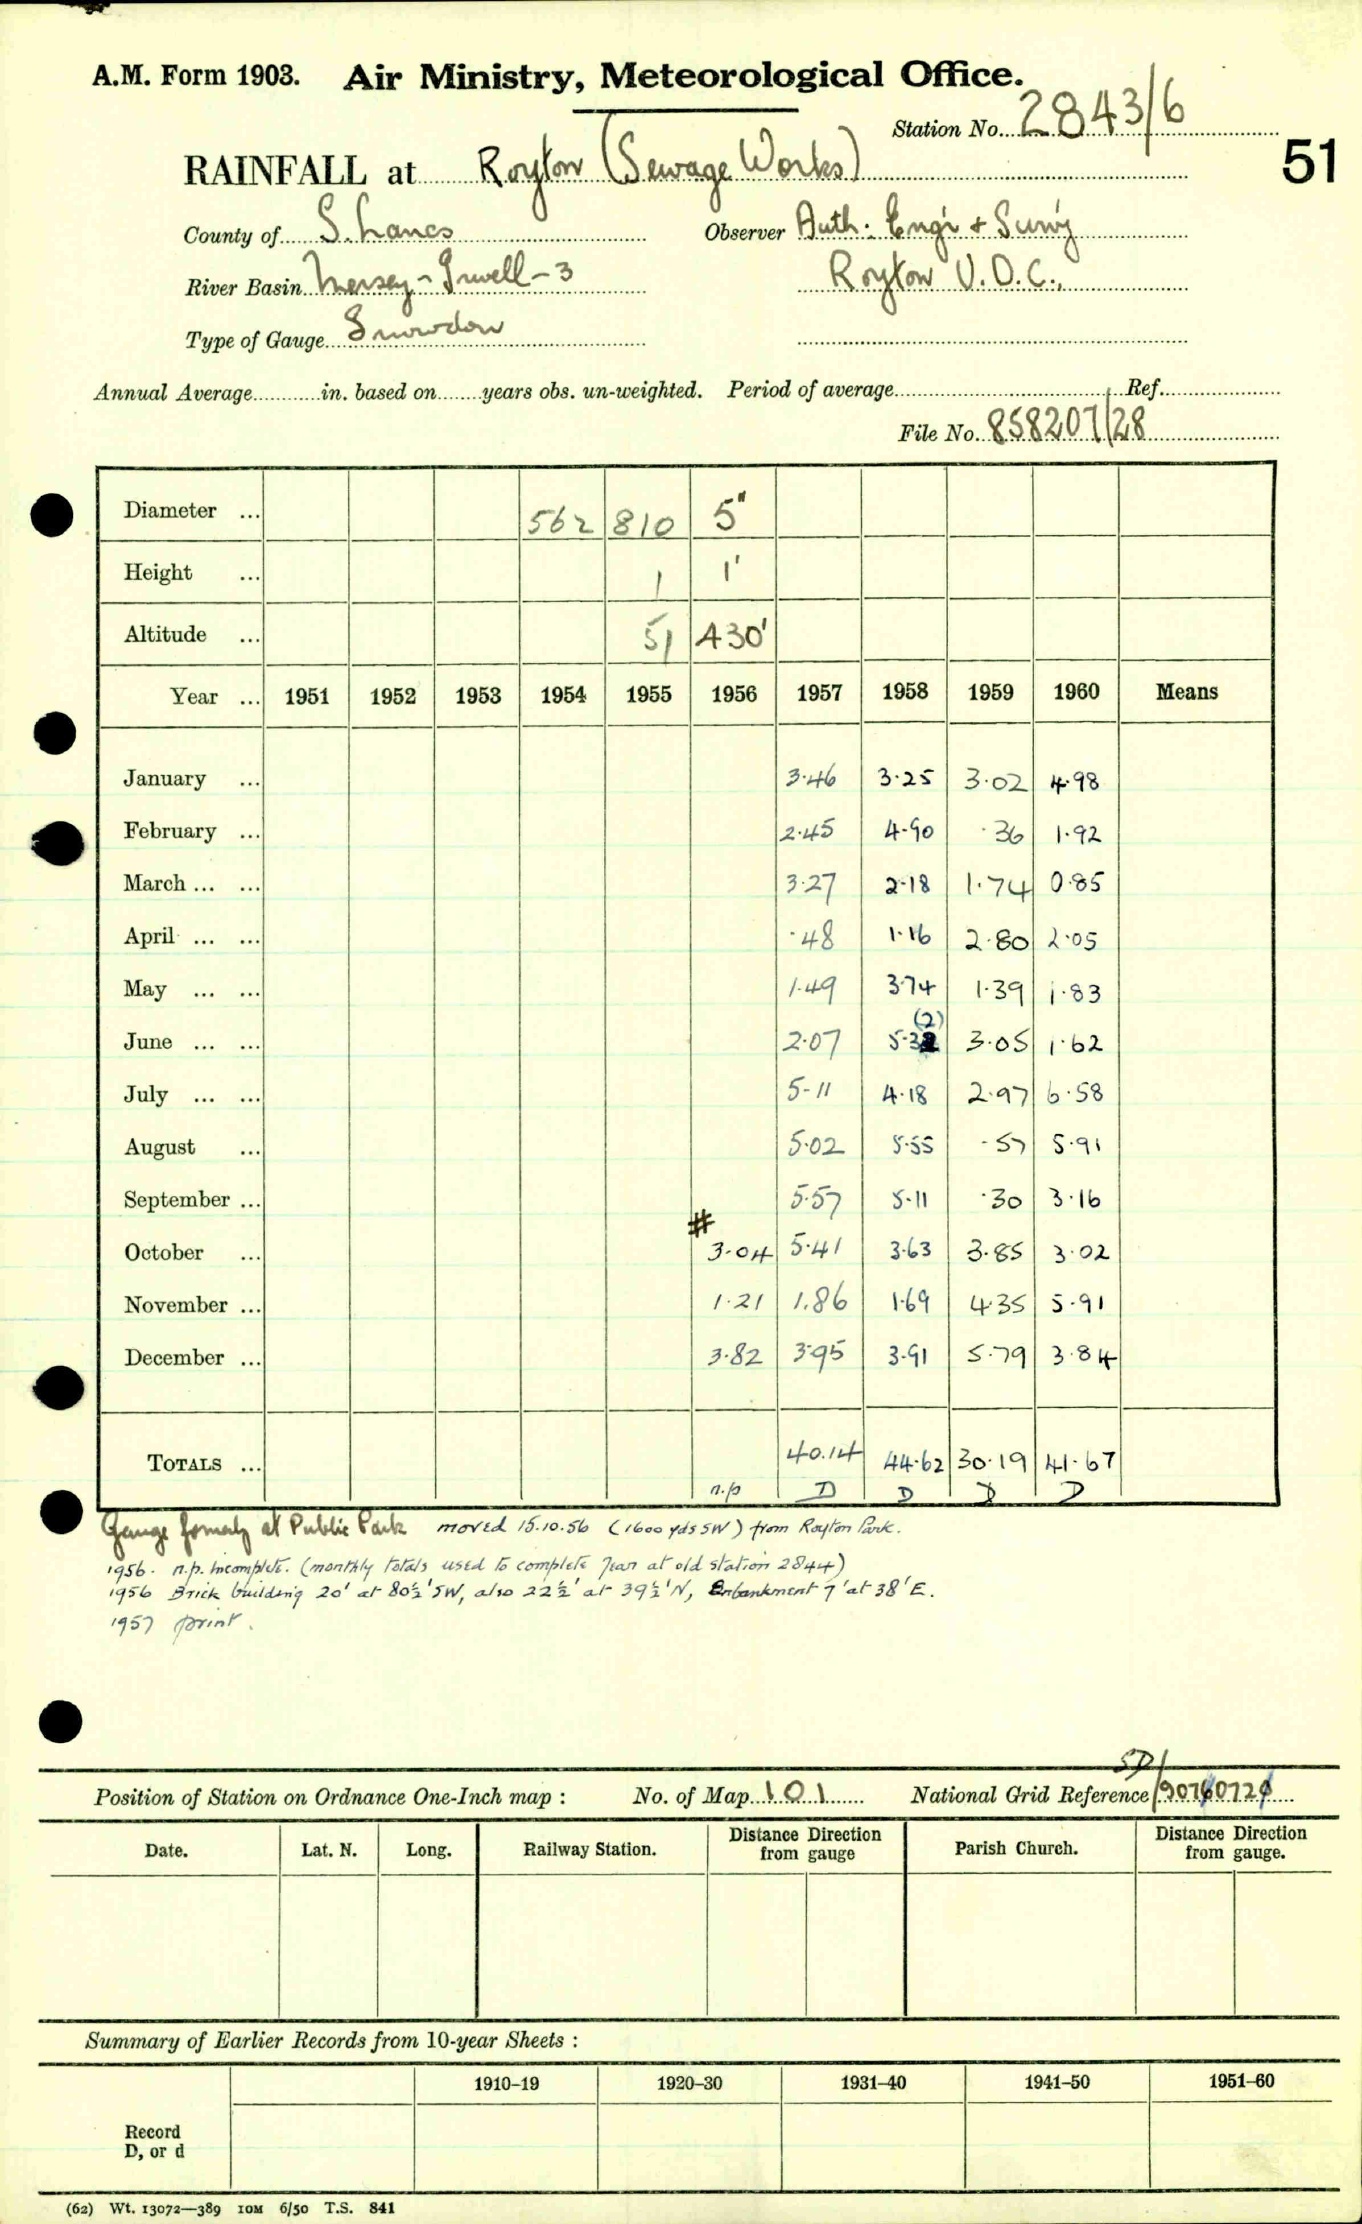 A.M. Form 1903. Air Ministry, Meteorological Office.
Station No. 2843/6
51
RAINFALL at Royton (Sewage Works)
County of S. Lancs Observer Auth: Engr + Surv'y
River Basin Mersey - Irwell - 3 Royton U.D.C.,
Type of Gauge Snowdon
Annual Average in. based on years obs. un-weighted. Period of average Ref.
File No. 858207/28
Diameter ... 562 810 5"
Height ... 1 1'
Altitude ... 51 430'
Year ... 1951 1952 1953 1954 1955 1956 1957 1958 1959 1960 Means
January ... 3.46 3.25 3.02 4.98
February ... 2.45 4.90 .36 1.92
March ... ... 3.27 2.18 1.74 0.85
April ... ... .48 1.16 2.80 2.05
May ... ... 1.49 3.74 1.39 1.83
(2)
June ... ... 2.07 5.32 3.05 1.62
July ... ... 5.11 4.18 2.97 6.58
August ... 5.02 5.55 .57 5.91
September ... 5.57 5.11 .30 3.16
#
October ... 3.04 5.41 3.63 3.85 3.02
November ... 1.21 1.86 1.69 4.35 5.91
December ... 3.82 3.95 3.91 5.79 3.84
TOTALS ... 40.14 44.62 30.19 41.67
n.p D D D D
Gauge formerly at Public Park moved 15.10.56 (1600 yds SW) from Royton Park.
1956. n.p. incomplete. (monthly totals used to complete year at old station 2844)
1956 Brick building 20' at 80½' SW, also 22½' at 39½' N, Embankment 7' at 38' E.
1957 print.
SD/
Position of Station on Ordnance One-Inch map : No. of Map 101 National Grid Reference
Date. Lat. N. Long. Railway Station. Distance Direction from gauge Parish Church. Distance Direction from gauge.
Summary of Earlier Records from 10-year Sheets :
1910–19 1920–30 1931–40 1941–50 1951–60
Record
D, or d
(62) Wt. 13072—389 10M 6/50 T.S. 841